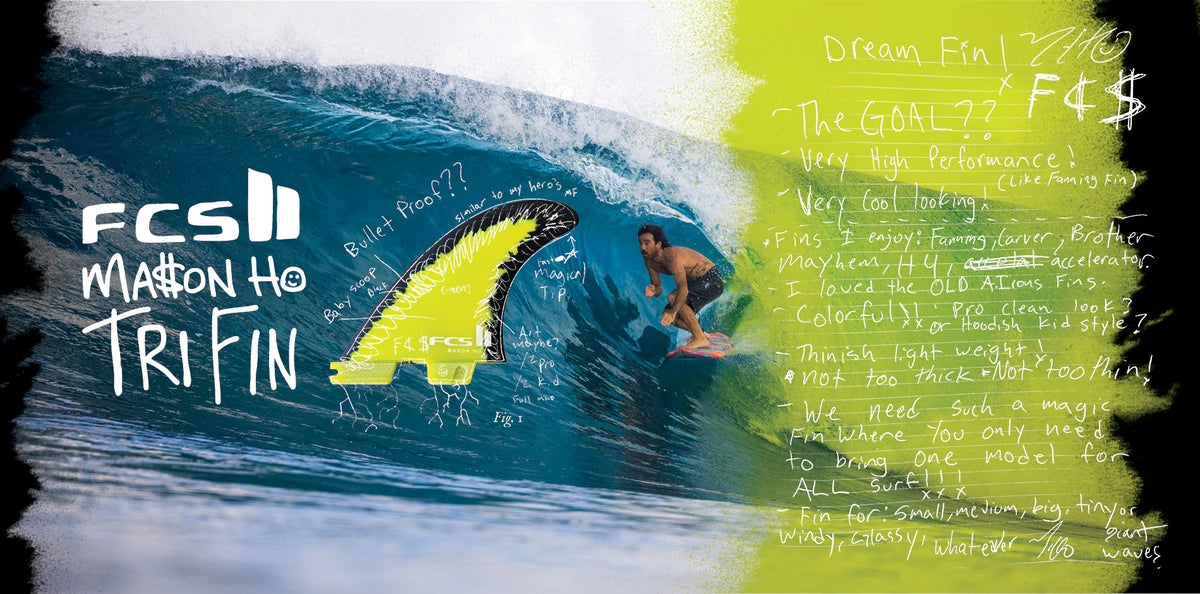 FCS II
MA$ON HO
TRI FIN
Bullet Proof??
similar to my hero's MF
Baby scoop
Black
Greens
Fast
magical
Tip
F¢$ FCS II
MASON HO
Art
maybe?
1/2 pro
1/2 kid
Full Mho
Fig. 1
Dream Fin!
x F¢$
- The GOAL??
- Very High Performance!
(Like Fanning Fin)
- Very Cool looking!
Fins I enjoy: Fanning, Carver, Brother
Mayhem, H4, accelerator.
- I loved the OLD A.Irons Fins.
- Colorful!! Pro clean look?
xx or Hoodish kid style?
- Thinish light weight!
Not too thick Not too thin!
- We need such a magic
Fin where you only need
to bring one model for
ALL surf!!!
x x x
- Fin for: small, medium, big, tiny or
windy, Glassy, whatever giant
waves?